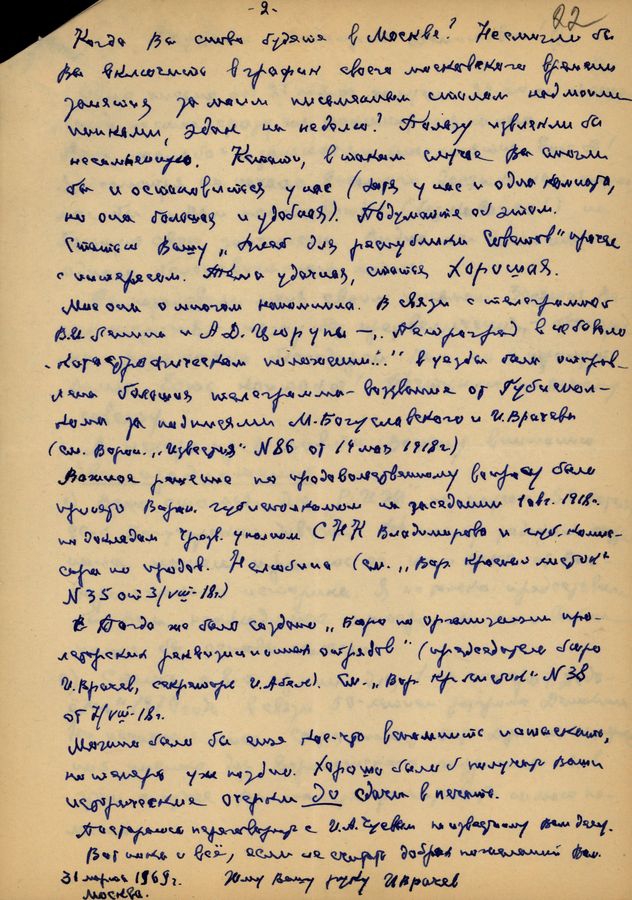 -2-
22
Когда Вы снова будете в Москве? Не смогли бы
Вы включить в график своего московского времени
занятия за моим письменным столом над моими
, эдак на неделю? Пользу извлекли бы
несомненную. Кстати, в таком случае Вы смогли
бы и остановиться у нас (хотя у нас и одна комната,
но она большая и удобная). Подумайте об этом.
Статью Вашу „Хлеб для республики Советов" прочел
с интересом. Тема удачная, статья хорошая.
Мне она о многом напомнила. В связи с телеграммой
В.И. Ленина и А.Д. Цюрупы —„Петроград в небывало
катастрофическом положении..." в уезды была отправ-
лена большая телеграмма-воззвание от Губиспол-
кома за подписями М. Богуславского и И. Врачева
(см. Ворон. „Известия" N 86 от 14 мая 1918 г.)
Важное решение по продовольственному вопросу было
принято Ворон. губисполкомом на заседании 1 авг. 1918 г.
по докладам Чрезв. уполном СНК Владимирова и губ. комис-
сара по продов. Нелюбина (см. „Вор. Красный листок"
N 35 от 3/VIII-18 г.)
Тогда же было создано „Бюро по организации про-
летарских реквизиционных отрядов" (председатель бюро
И. Врачев, секретарь И. Абель). См. „Вор. Кр. листок" N 38
от 7/VIII-18 г.
Можно было бы еще кое-что вспомнить и отыскать,
но теперь уже поздно. Хорошо было б получать Ваши
исторические очерки до сдачи в печать.
Постараюсь переговорить с И.А. по известному Вам делу.
Вот пока и всё, если не считать добрых пожеланий Вам.
31 марта 1969 г. Жму Вашу руку ИВрачев
Москва.